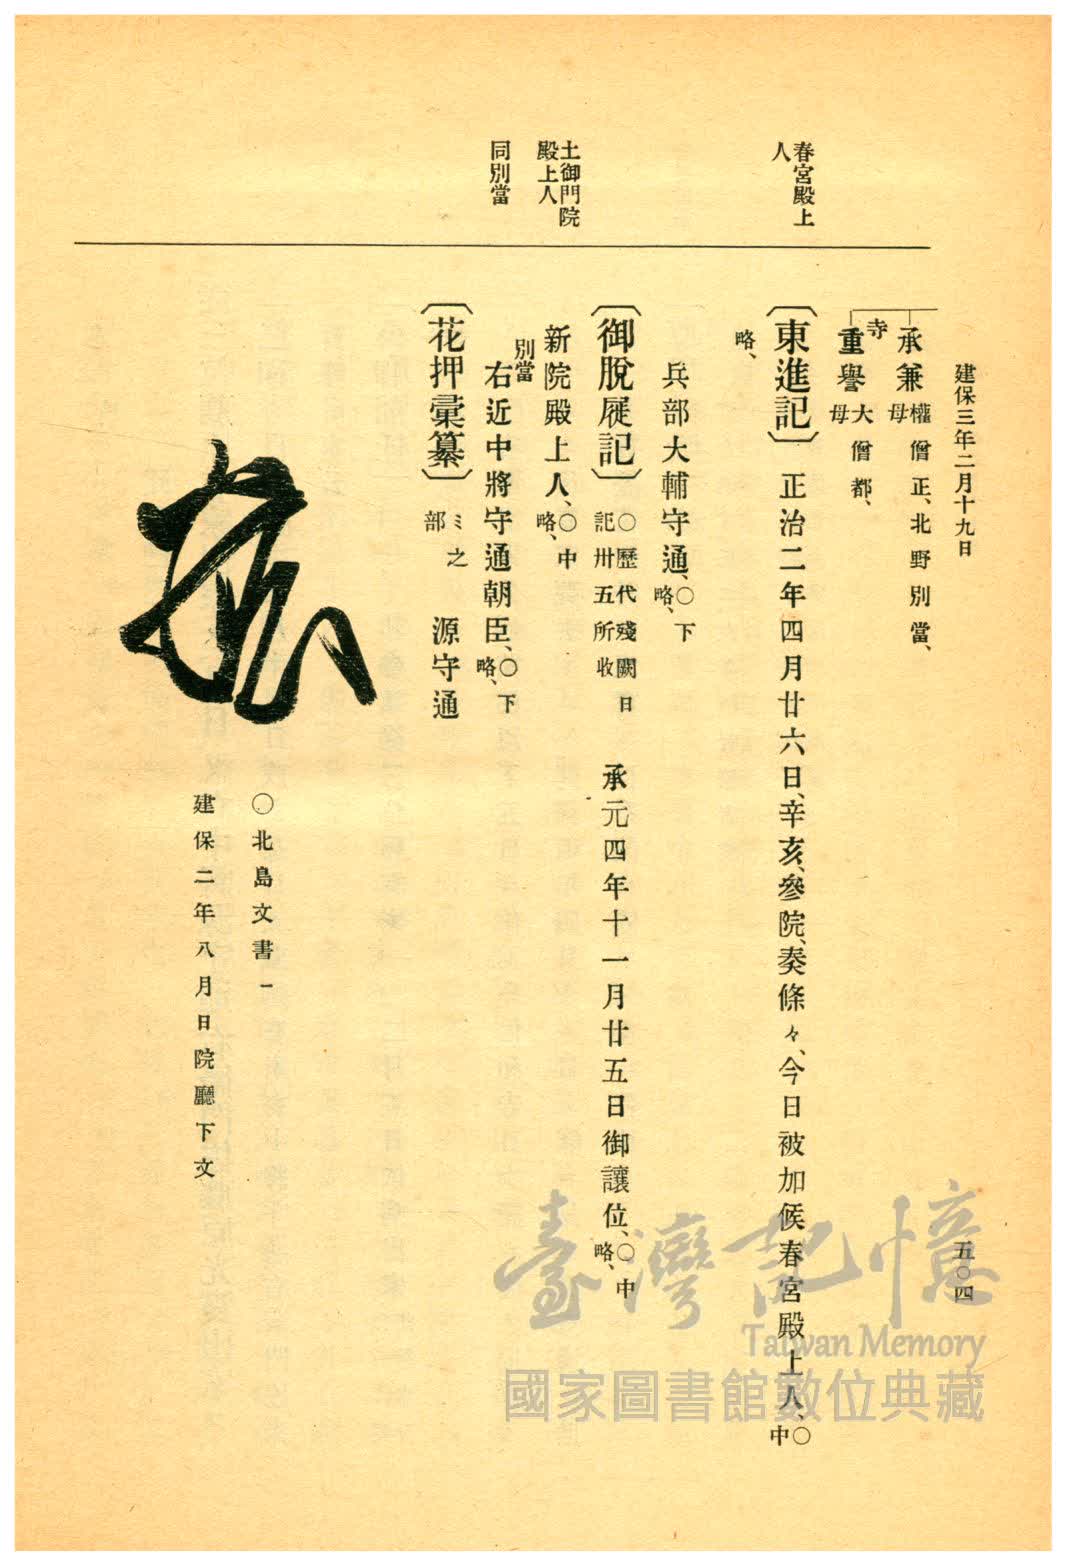 建保三年二月十九日
五〇四
春宮殿上
人
土御門院
殿上人
同別當
承兼 權僧正、北野別當、
母
寺
重譽 大僧都、
母
〔東進記〕 正治二年四月廿六日、辛亥、參院、奏條々、今日被加候春宮殿上人、〇中
略、
兵部大輔守通、〇下
略、
〔御脫屣記〕 〇歷代殘闕日
記卅五所收
承元四年十一月廿五日御讓位、〇中
略、
新院殿上人、〇中
略、
別當
右近中將守通朝臣、〇下
略、
〔花押彙纂〕 ミ之
部
源守通
〇北島文書一
建保二年八月日院廳下文
臺灣記憶
Taiwan Memory
國家圖書館數位典藏